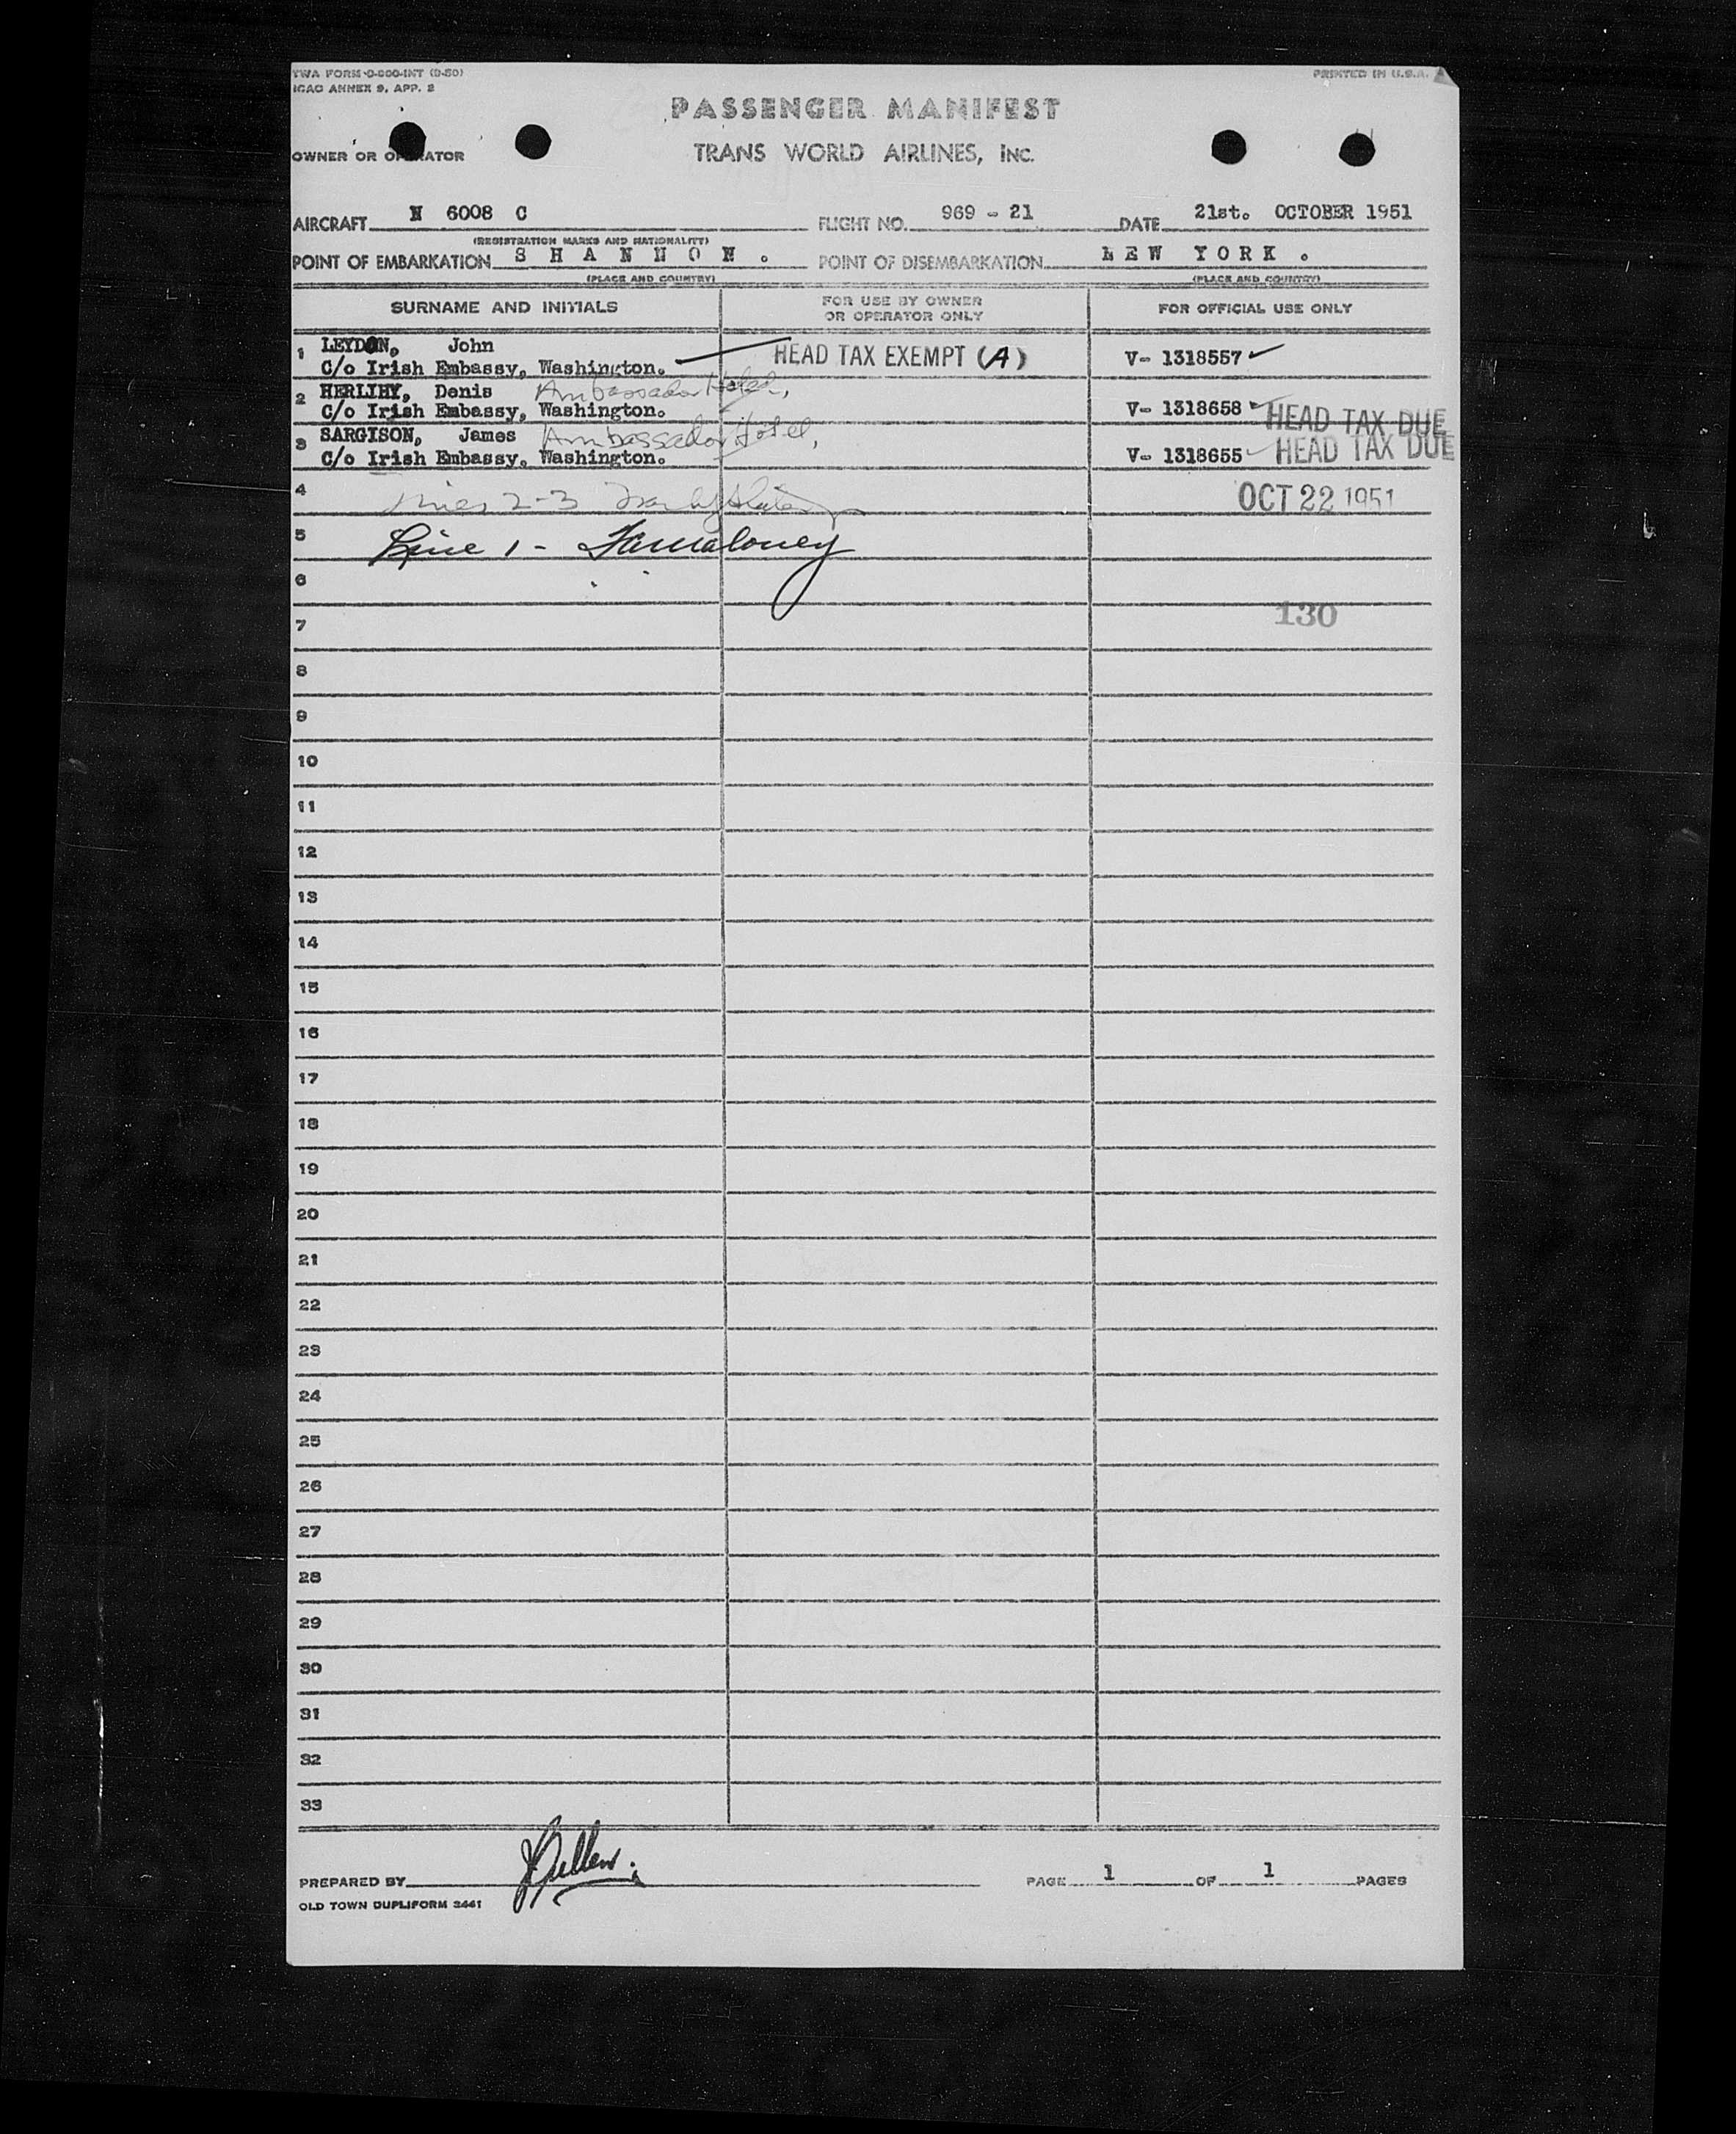 TWA FORM O-800-INT (9-50)
PRINTED IN U.S.A.
ICAO ANNEX 9, APP. 2
PASSENGER MANIFEST
OWNER OR OPERATOR
TRANS WORLD AIRLINES, INC.
AIRCRAFT N 6008 C FLIGHT NO. 969 - 21 DATE 21st. OCTOBER 1951
(REGISTRATION MARKS AND NATIONALITY)
POINT OF EMBARKATION S H A N N O N . POINT OF DISEMBARKATION NEW YORK .
(PLACE AND COUNTRY) (PLACE AND COUNTRY)
SURNAME AND INITIALS FOR USE BY OWNER OR OPERATOR ONLY FOR OFFICIAL USE ONLY
1 LEYDON, John
C/o Irish Embassy, Washington. HEAD TAX EXEMPT (A) V- 1318557
2 HERLIHY, Denis Ambassador Hotel,
C/o Irish Embassy, Washington. V- 1318658 HEAD TAX DUE
3 SARGISON, James Ambassador Hotel,
C/o Irish Embassy, Washington. V- 1318655 HEAD TAX DUE
4 Lines 2-3 OCT 22 1951
5 Line 1 -
6
7 130
8
9
10
11
12
13
14
15
16
17
18
19
20
21
22
23
24
25
26
27
28
29
30
31
32
33
PREPARED BY PAGE 1 OF 1 PAGES
OLD TOWN DUPLIFORM 2441